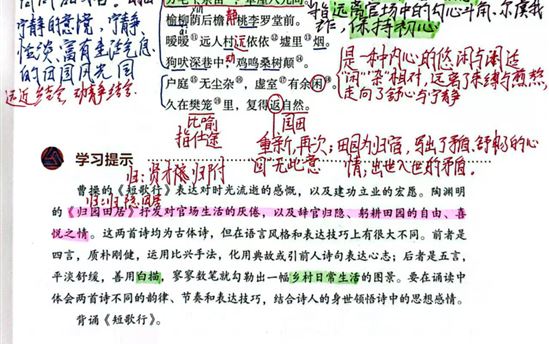 宁静的意境,宁静
恬淡、富有生活气息
的田园风光图
远近结合,动静结合
静
榆柳荫后檐,桃李罗堂前。
暧暧⑮远人村,依依⑯墟里⑰烟。
远
狗吠深巷中,鸡鸣桑树颠⑱。
户庭⑲无尘杂⑳,虚室㉑有余闲㉒。
久在樊笼里,复得返自然。
是一种内心的悠闲与闲适
“闲”“杂”相对,远离了束缚与煎熬
走向了舒心与宁静
比喻
指仕途
田园
重新,再次;田园为归宿,写出了矛盾、舒畅的心
情;出世入世的矛盾。
学习提示
归:贤才归附
归:归隐田居
曹操的《短歌行》表达对时光流逝的感慨,以及建功立业的宏愿。陶渊明
的《归园田居》抒发对官场生活的厌倦,以及辞官归隐、躬耕田园的自由、喜
悦之情。这两首诗均为古体诗,但在语言风格和表达技巧上有很大不同。前者是
四言,质朴刚健,运用比兴手法,化用典故或引前人诗句表达心志;后者是五言,
平淡舒缓,善用白描,寥寥数笔就勾勒出一幅乡村日常生活的图景。要在诵读中
体会两首诗不同的韵律、节奏和表达技巧,结合诗人的身世领悟诗中的思想感情。
背诵《短歌行》。